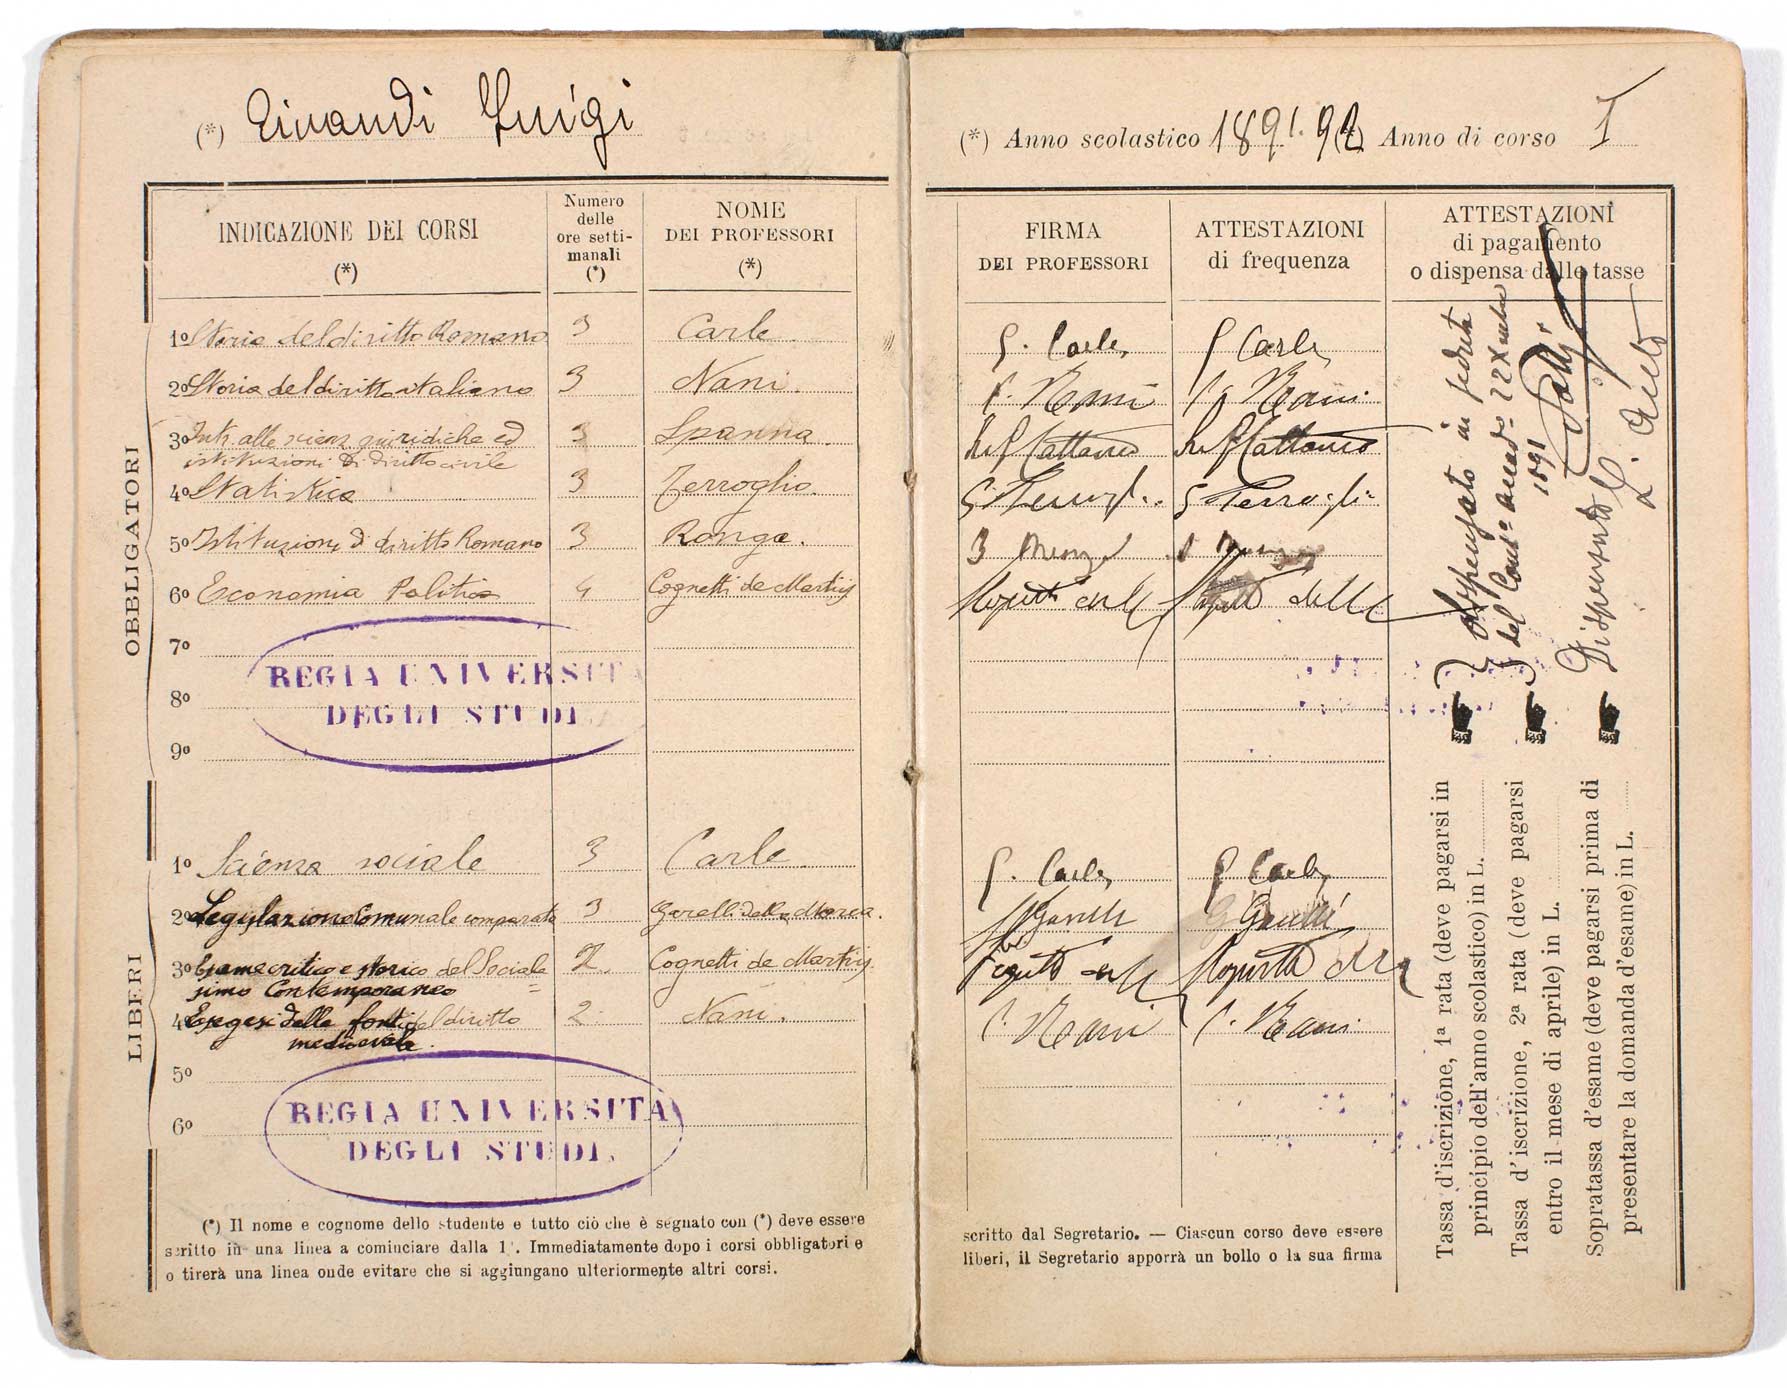 (*) Einaudi Luigi
INDICAZIONE DEI CORSI
(*)
Numero
delle
ore setti-
manali
(*)
NOME
DEI PROFESSORI
(*)
OBBLIGATORI
1º Storia del diritto Romano 3 Carle
2º Storia del diritto italiano 3 Nani.
3º Intr. alle scienze giuridiche ed 3 Spanna.
istituzioni di diritto civile
4º Statistica 3 Ferroglio.
5º Istituzioni di diritto Romano 3 Ronga.
6º Economia Politica 4 Cognetti de Martiis
7º
8º
9º
REGIA UNIVERSITA
DEGLI STUDI
LIBERI
1º Scienza sociale 3 Carle
2º Legislazione Comunale comparata 3 Garelli della Morea.
3º Esame critico e storico del Sociali 2. Cognetti de Martiis
simo Contemporaneo
4º Esegesi delle fonti del diritto 2 Nani.
medioevale.
5º
6º
REGIA UNIVERSITA
DEGLI STUDI.
(*) Il nome e cognome dello studente e tutto ciò che è segnato con (*) deve essere
scritto in una linea a cominciare dalla 1ª. Immediatamente dopo i corsi obbligatori e
o tirerà una linea onde evitare che si aggiungano ulteriormente altri corsi.
(*) Anno scolastico 1891.92 Anno di corso I
FIRMA
DEI PROFESSORI
ATTESTAZIONI
di frequenza
ATTESTAZIONI
di pagamento
o dispensa dalle tasse
G. Carle G Carle
C. Nani C. Nani
Cattaneo Cattaneo
G Ferroglio G Ferroglio
Cognetti Cognetti
G. Carle G Carle
G Garelli G Garelli
Cognetti Cognetti
C. Nani C. Nani
scritto dal Segretario. — Ciascun corso deve essere
liberi, il Segretario apporrà un bollo o la sua firma
Tassa d'iscrizione, 1ª rata (deve pagarsi in
principio dell'anno scolastico) in L.
Dispensato in seduta
del Cons.º accad.º 22 Xmbre
1891
Tassa d'iscrizione, 2ª rata (deve pagarsi
entro il mese di aprile) in L.
Sopratassa d'esame (deve pagarsi prima di
presentare la domanda d'esame) in L.
Dispensato